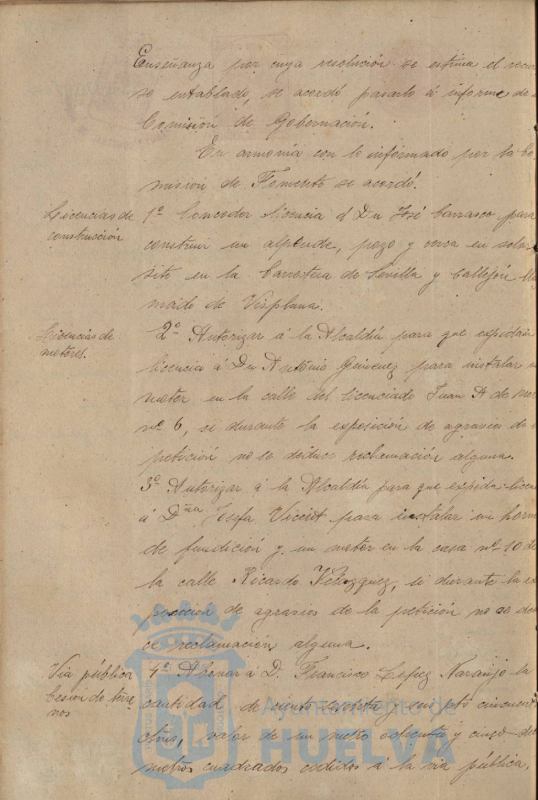 Enseñanza por cuya resolución se estima el recur
so entablado, se acordó pasarlo á informe de
Comisión de Gobernación.
En armonía con lo informado por la Co
misión de Fomento se acordó.
Licencias de construcción
1º Conceder licencia á Dn José Carrasco para
construir un alpende, pozo y cerca en solar
sito en la Carretera de Sevilla y Callejón lla
mado de Visplana.
Licencias de motores.
2º Autorizar á la Alcaldía para que expida
licencia á Dn Antonio Gimenez para instalar
motor en la calle del licenciado Juan A de Mor
nº 6, si durante la exposición de agravios de
petición no se deduce reclamación alguna.
3º Autorizar á la Alcaldía para que expida licen
á Dña Josefa Vicent para instalar un horno
de fundición y un motor en la casa nº 10 de
la calle Ricardo Velazquez, si durante la ex
posición de agravios de la petición no se dedu
ce reclamación alguna.
Via pública Cesión de terre nos
4º Abonar á D. Francisco López Naranjo la
cantidad de ciento y seis ptas cincuent
ctms, valor de un metro ochenta y cinco deci
metros cuadrados cedidos á la via pública,
Ayuntamiento de
HUELVA